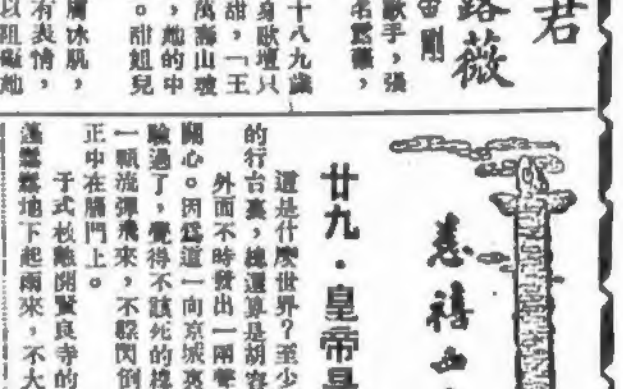 君
路薇
歌手，張
十八九歲
身歌壇只
甜，「王
萬壽山坡
，她的中
。甜姐兒
膚冰肌，
有表情，
以阻礙她
慈禧
廿九·皇帝是
這是什麼世界？至少
的行台裏，總還算是胡容
外面不時發出一兩聲
關心。因爲這一向京城裏
驗過了，覺得不該死的樣
一顆流彈飛來，不躲閃倒
正中在腦門上。
于式枚離開賢良寺的
蓬飄飄地下起雨來，不大